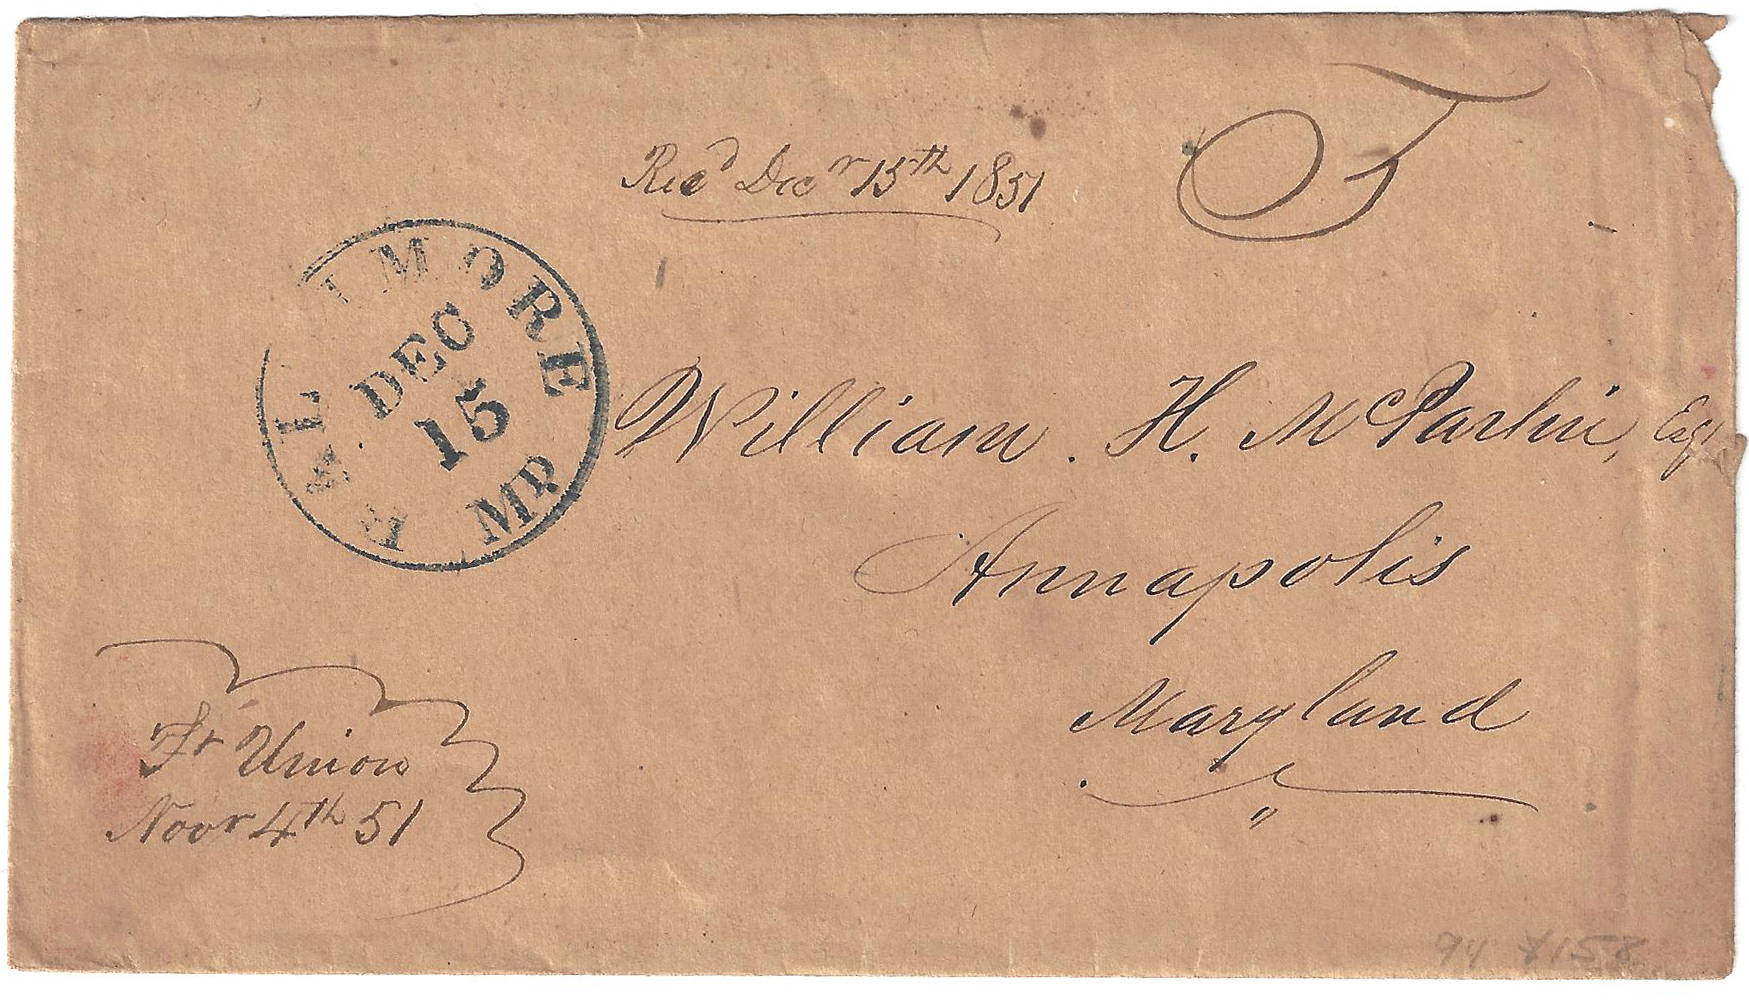 F
Recd Decr 15th 1851
BALTIMORE
DEC
15
MD.
William. H. McParlin, Esqr
Annapolis
Maryland
Fr Union
Novr 4th 51
94 $158